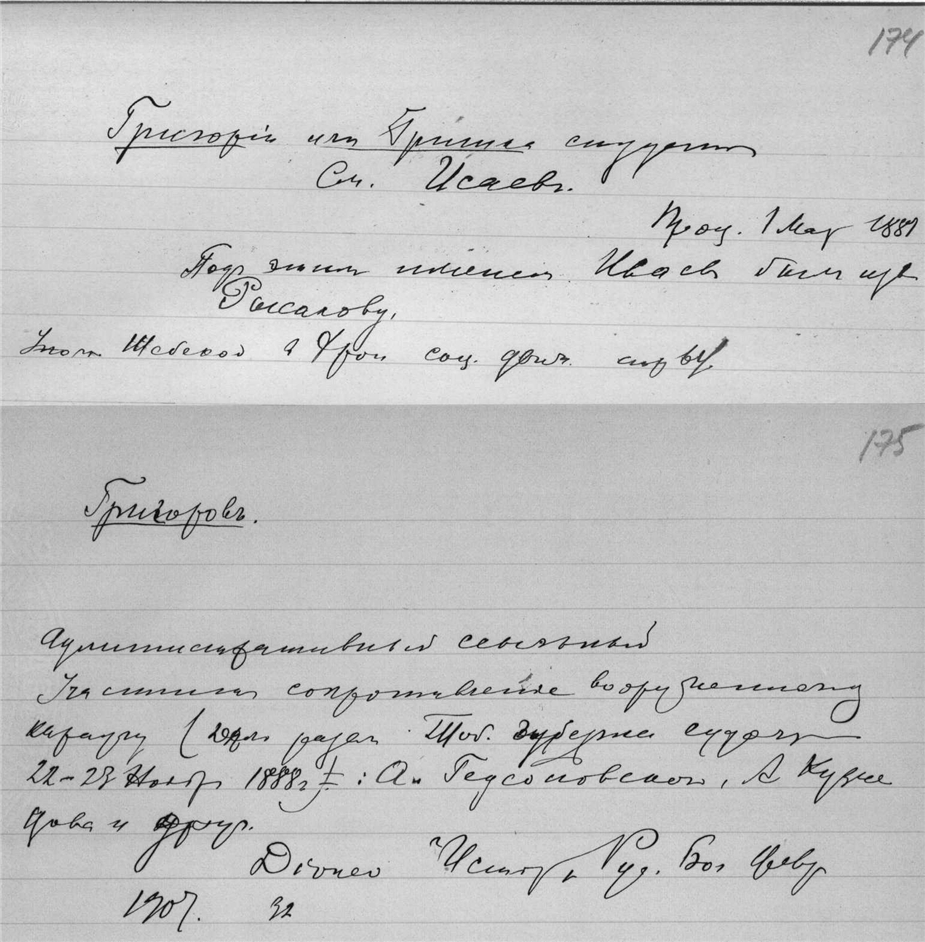 174
Григорій или Гришка студент
См. Исаевъ.
Проц. 1 Мар 1881
Подъ этим именем Исаев был изв
Рысакову.
Шебеко соц. движ. стр
175
Григоровъ.
Административный ссыльный
Участник сопротивление вооруженному
караулу ( дело разсм Тоб. губернск судом
22-23 Ноябр 1888г : Ал Гедеоновского, А Кузне
цова и друг.
Діонео 1907. 32